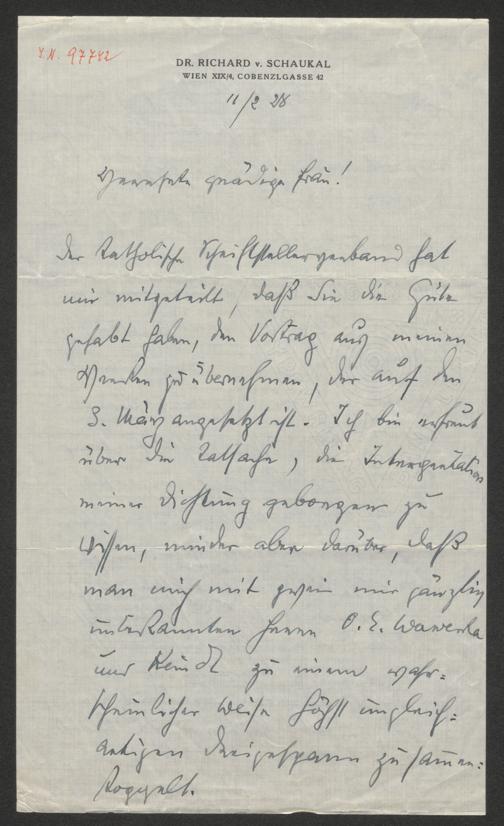 I.N. 97742
DR. RICHARD v. SCHAUKAL
WIEN XIX/4, COBENZLGASSE 42
11/2 28
Verehrte gnädige Frau!
Der Katholische Schriftstellerverband hat
mir mitgeteilt, daß Sie die Güte
gehabt haben, den Vortrag aus meinen
Werken zu übernehmen, der auf den
3. März angesetzt ist. Ich bin erfreut
über die Tatsache, die Interpretation
meiner Dichtung geborgen zu
wissen, minder aber darüber, daß
man mich mit zwein mir gänzlich
unbekannten Herren O. E. Wawerka
und Kindl zu einem wahr=
scheinlicher Weise höchst ungleich=
artigen Dreigespann zusammen=
koppelt.